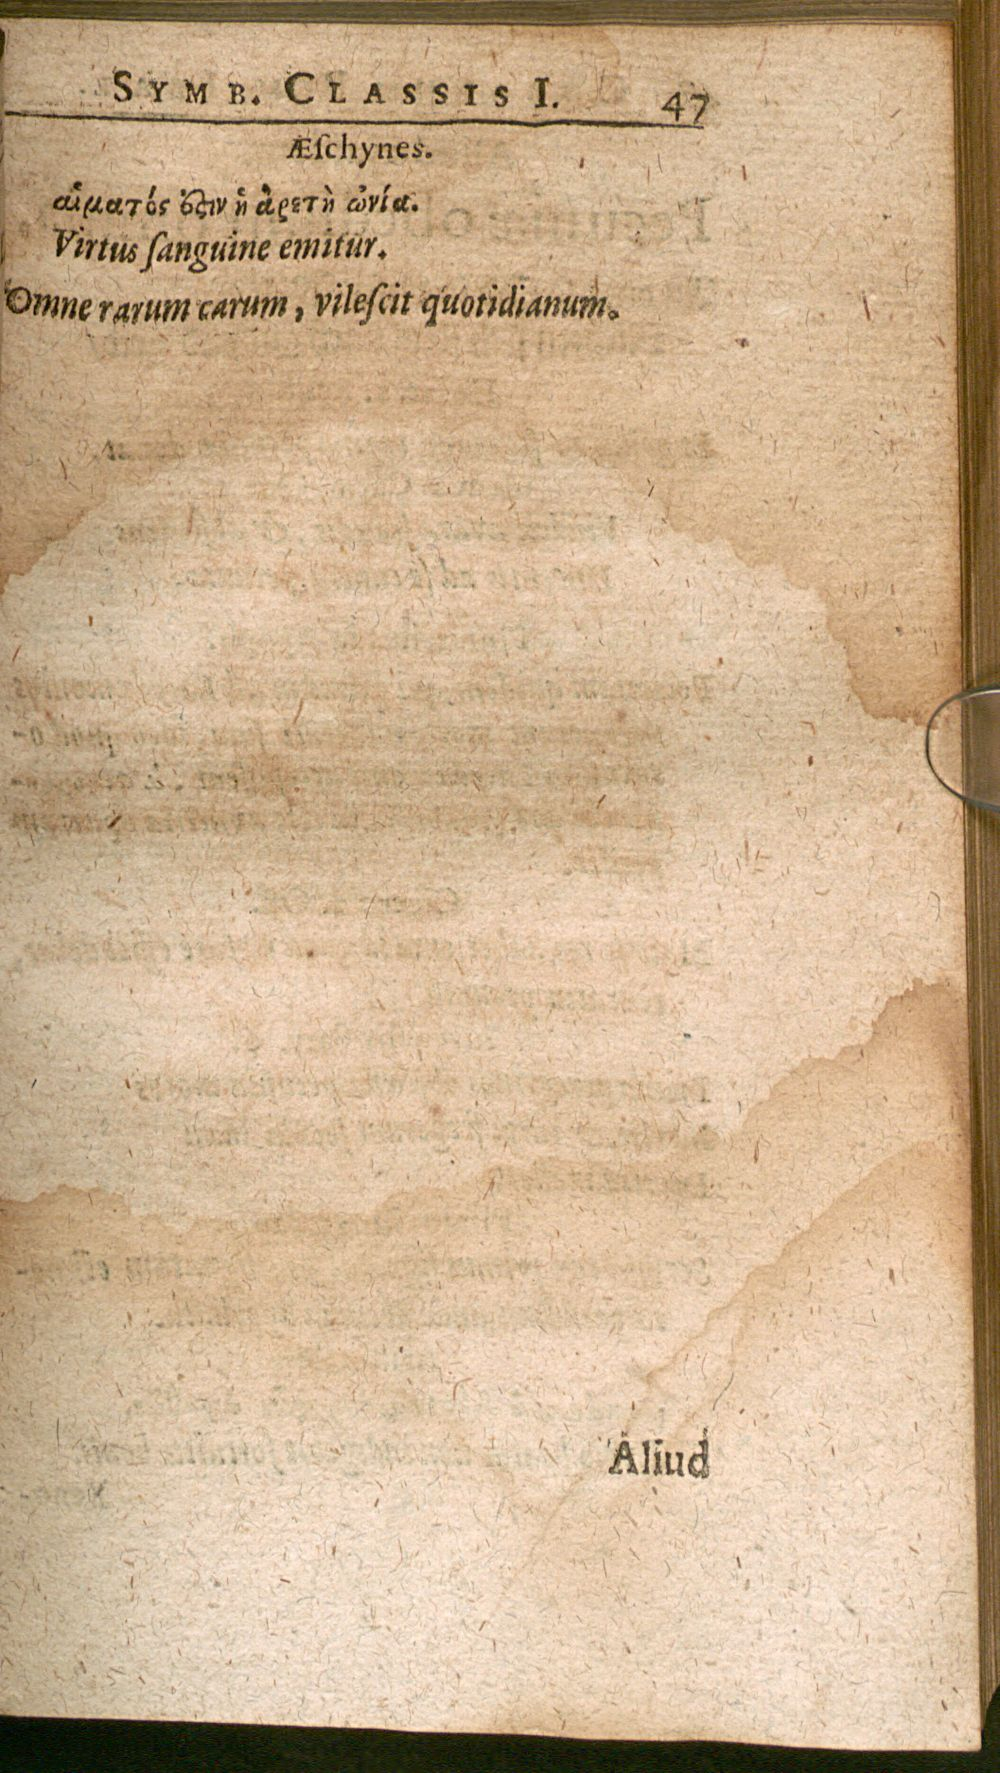 SYMB. CLASSIS I. 47
Æſchynes.
αἵματός ἐστιν ἡ ἀρετὴ ὠνία.
Virtus ſanguine emitur.
Omne rarum carum, vileſcit quotidianum.
Aliud